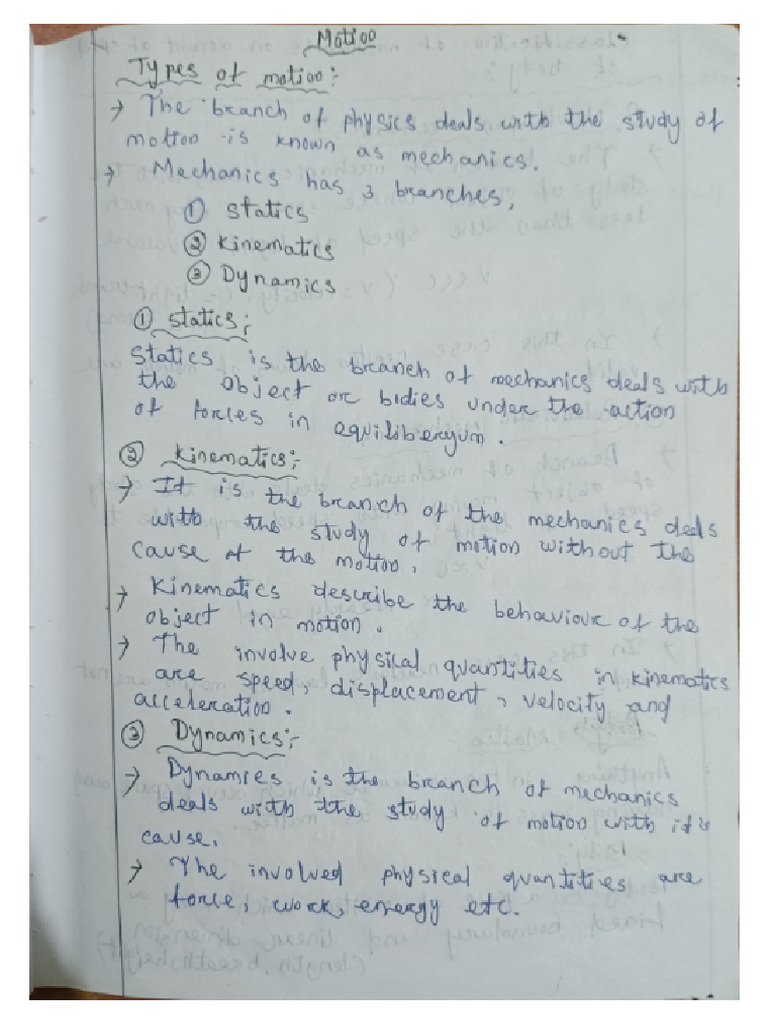 Motion
Types of motion:-
→ The branch of physics deals with the study of
motion is known as mechanics.
→ Mechanics has 3 branches,
① Statics
② Kinematics
③ Dynamics
① Statics:-
Statics is the branch of mechanics deals with
the object or bodies under the action
of forces in equiliberyum.
② Kinematics:-
→ It is the branch of the mechanics deals
with the study of motion without the
cause of the motion.
→ Kinematics describe the behaviour of the
object in motion.
→ The involve physical quantities in kinematics
are speed, displacement, velocity and
acceleration.
③ Dynamics:-
→ Dynamics is the branch of mechanics
deals with the study of motion with it's
cause.
→ The involved physical quantities are
force, work, energy etc.